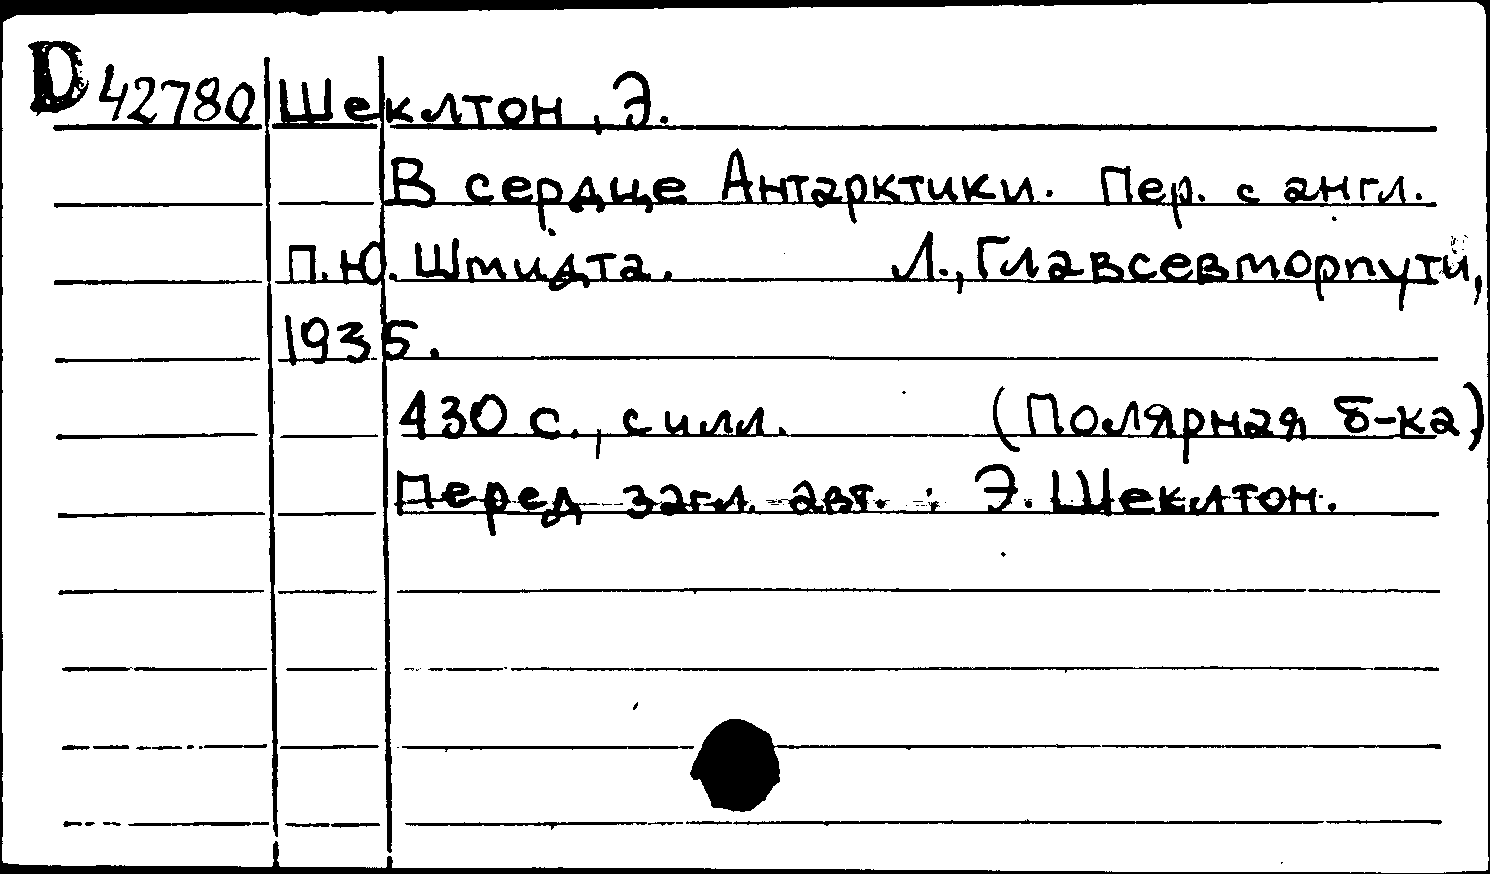 D 42780 Шеклтон, Э.
В сердце Антарктики. Пер. с англ.
П.Ю. Шмидта. Л., Главсевморпути,
1935.
430 с., с илл. (Полярная б-ка)
Перед загл. авт. : Э. Шеклтон.